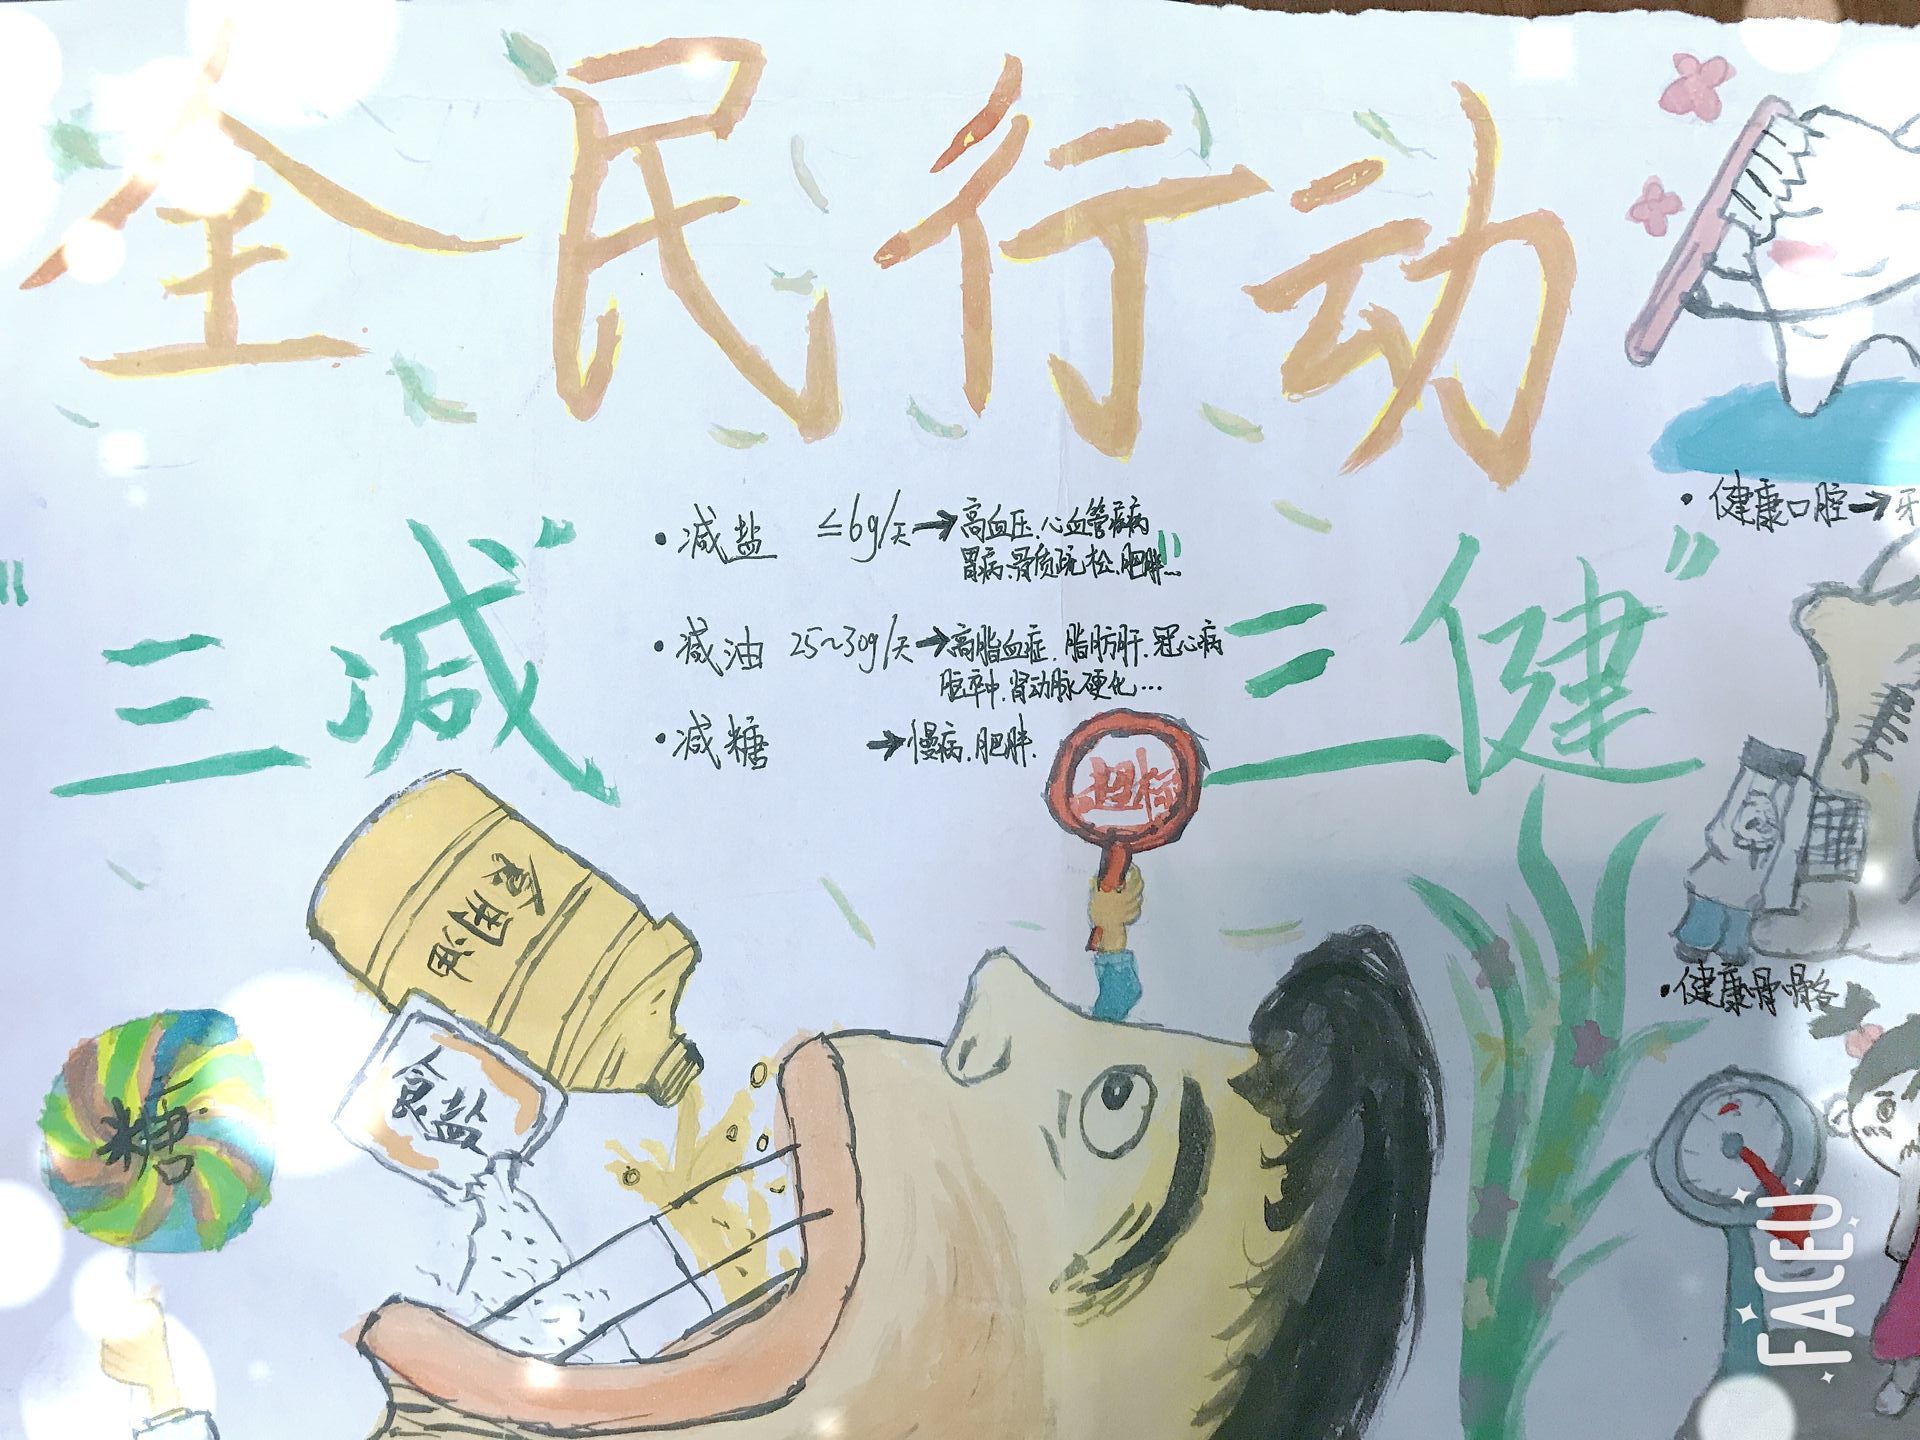 全民行动
"三减"
• 减盐 ≤6g/天→高血压、心血管疾病
胃病、骨质疏松、肥胖…
• 减油 25~30g/天→高脂血症、脂肪肝、冠心病
脑卒中、肾动脉硬化…
• 减糖 →慢病、肥胖.
"三健"
• 健康口腔→牙
• 健康骨骼
超标
食用油
食盐
糖
FACEU